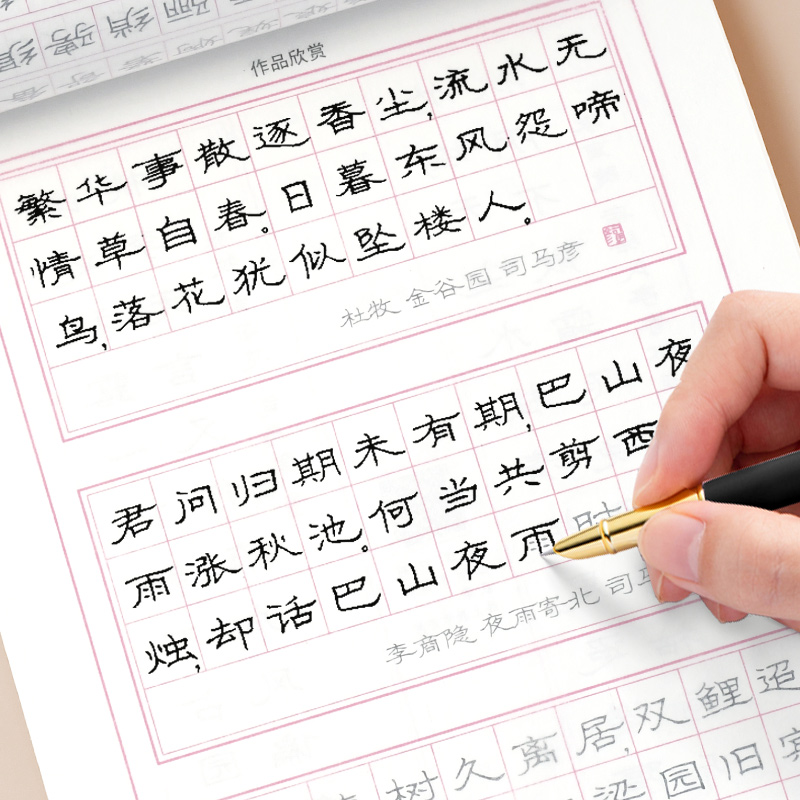 作品欣赏
繁华事散逐香尘,流水无
情草自春。日暮东风怨啼
鸟,落花犹似坠楼人。
杜牧 金谷园 司马彦
君问归期未有期,巴山夜
雨涨秋池。何当共剪西
烛,却话巴山夜雨时
李商隐 夜雨寄北 司马
树久离居,双鲤迢
梁园旧宾